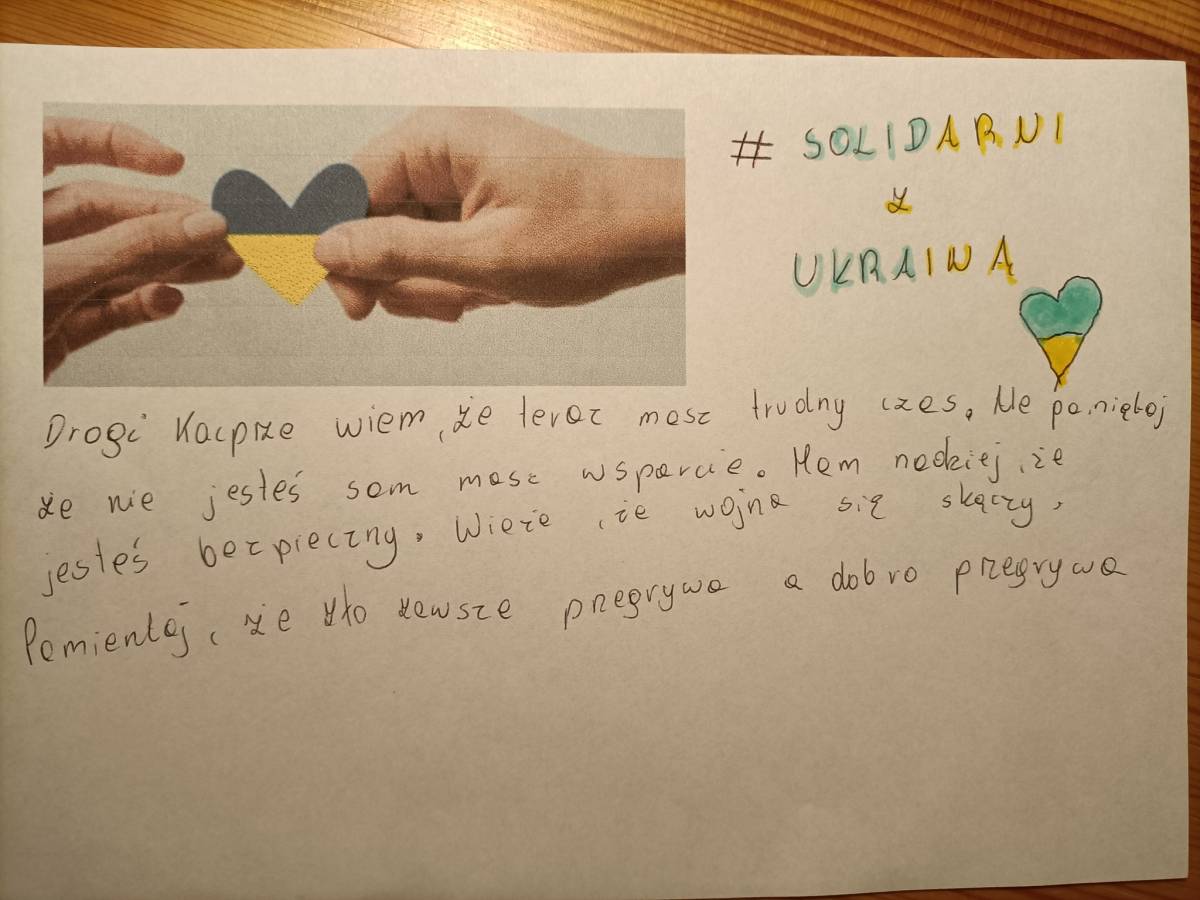 # SOLIDARNI
z
UKRAINĄ
Drogi Kacprze wiem, że teraz masz trudny czas. Ale pamiętaj
że nie jesteś sam masz wsparcie. Mam nadziej, że
jesteś bezpieczny. Wieże, że wojna się skączy.
Pamientaj, że zło zawsze przegrywa a dobro przegrywa